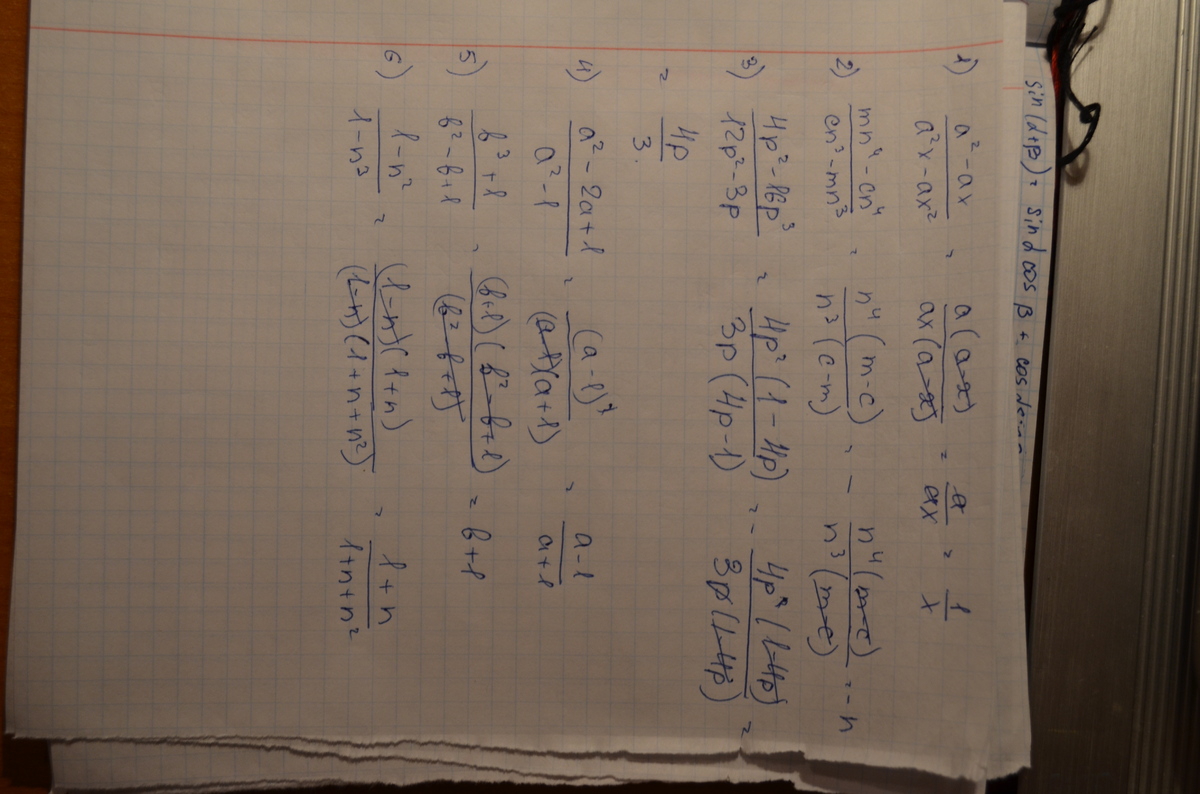 sin(α+β) = sinα cosβ + cosα
1) (a² - ax)/(a²x - ax²) = a(a-x)/ax(a-x) = a/ax = 1/x
2) (mn⁴ - cn⁴)/(cn³ - mn³) = n⁴(m-c)/n³(c-m) = - n⁴(m-c)/n³(m-c) = -n
3) (4p² - 16p³)/(12p² - 3p) = 4p²(1-4p)/3p(4p-1) = - 4p²(1-4p)/3p(1-4p) =
= 4p/3
4) (a² - 2a + 1)/(a² - 1) = (a-1)²/(a-1)(a+1) = (a-1)/(a+1)
5) (b³ + 1)/(b² - b + 1) = (b+1)(b² - b + 1)/(b² - b + 1) = b + 1
6) (1 - n²)/(1 - n³) = (1-n)(1+n)/(1-n)(1+n+n²) = (1+n)/(1+n+n²)